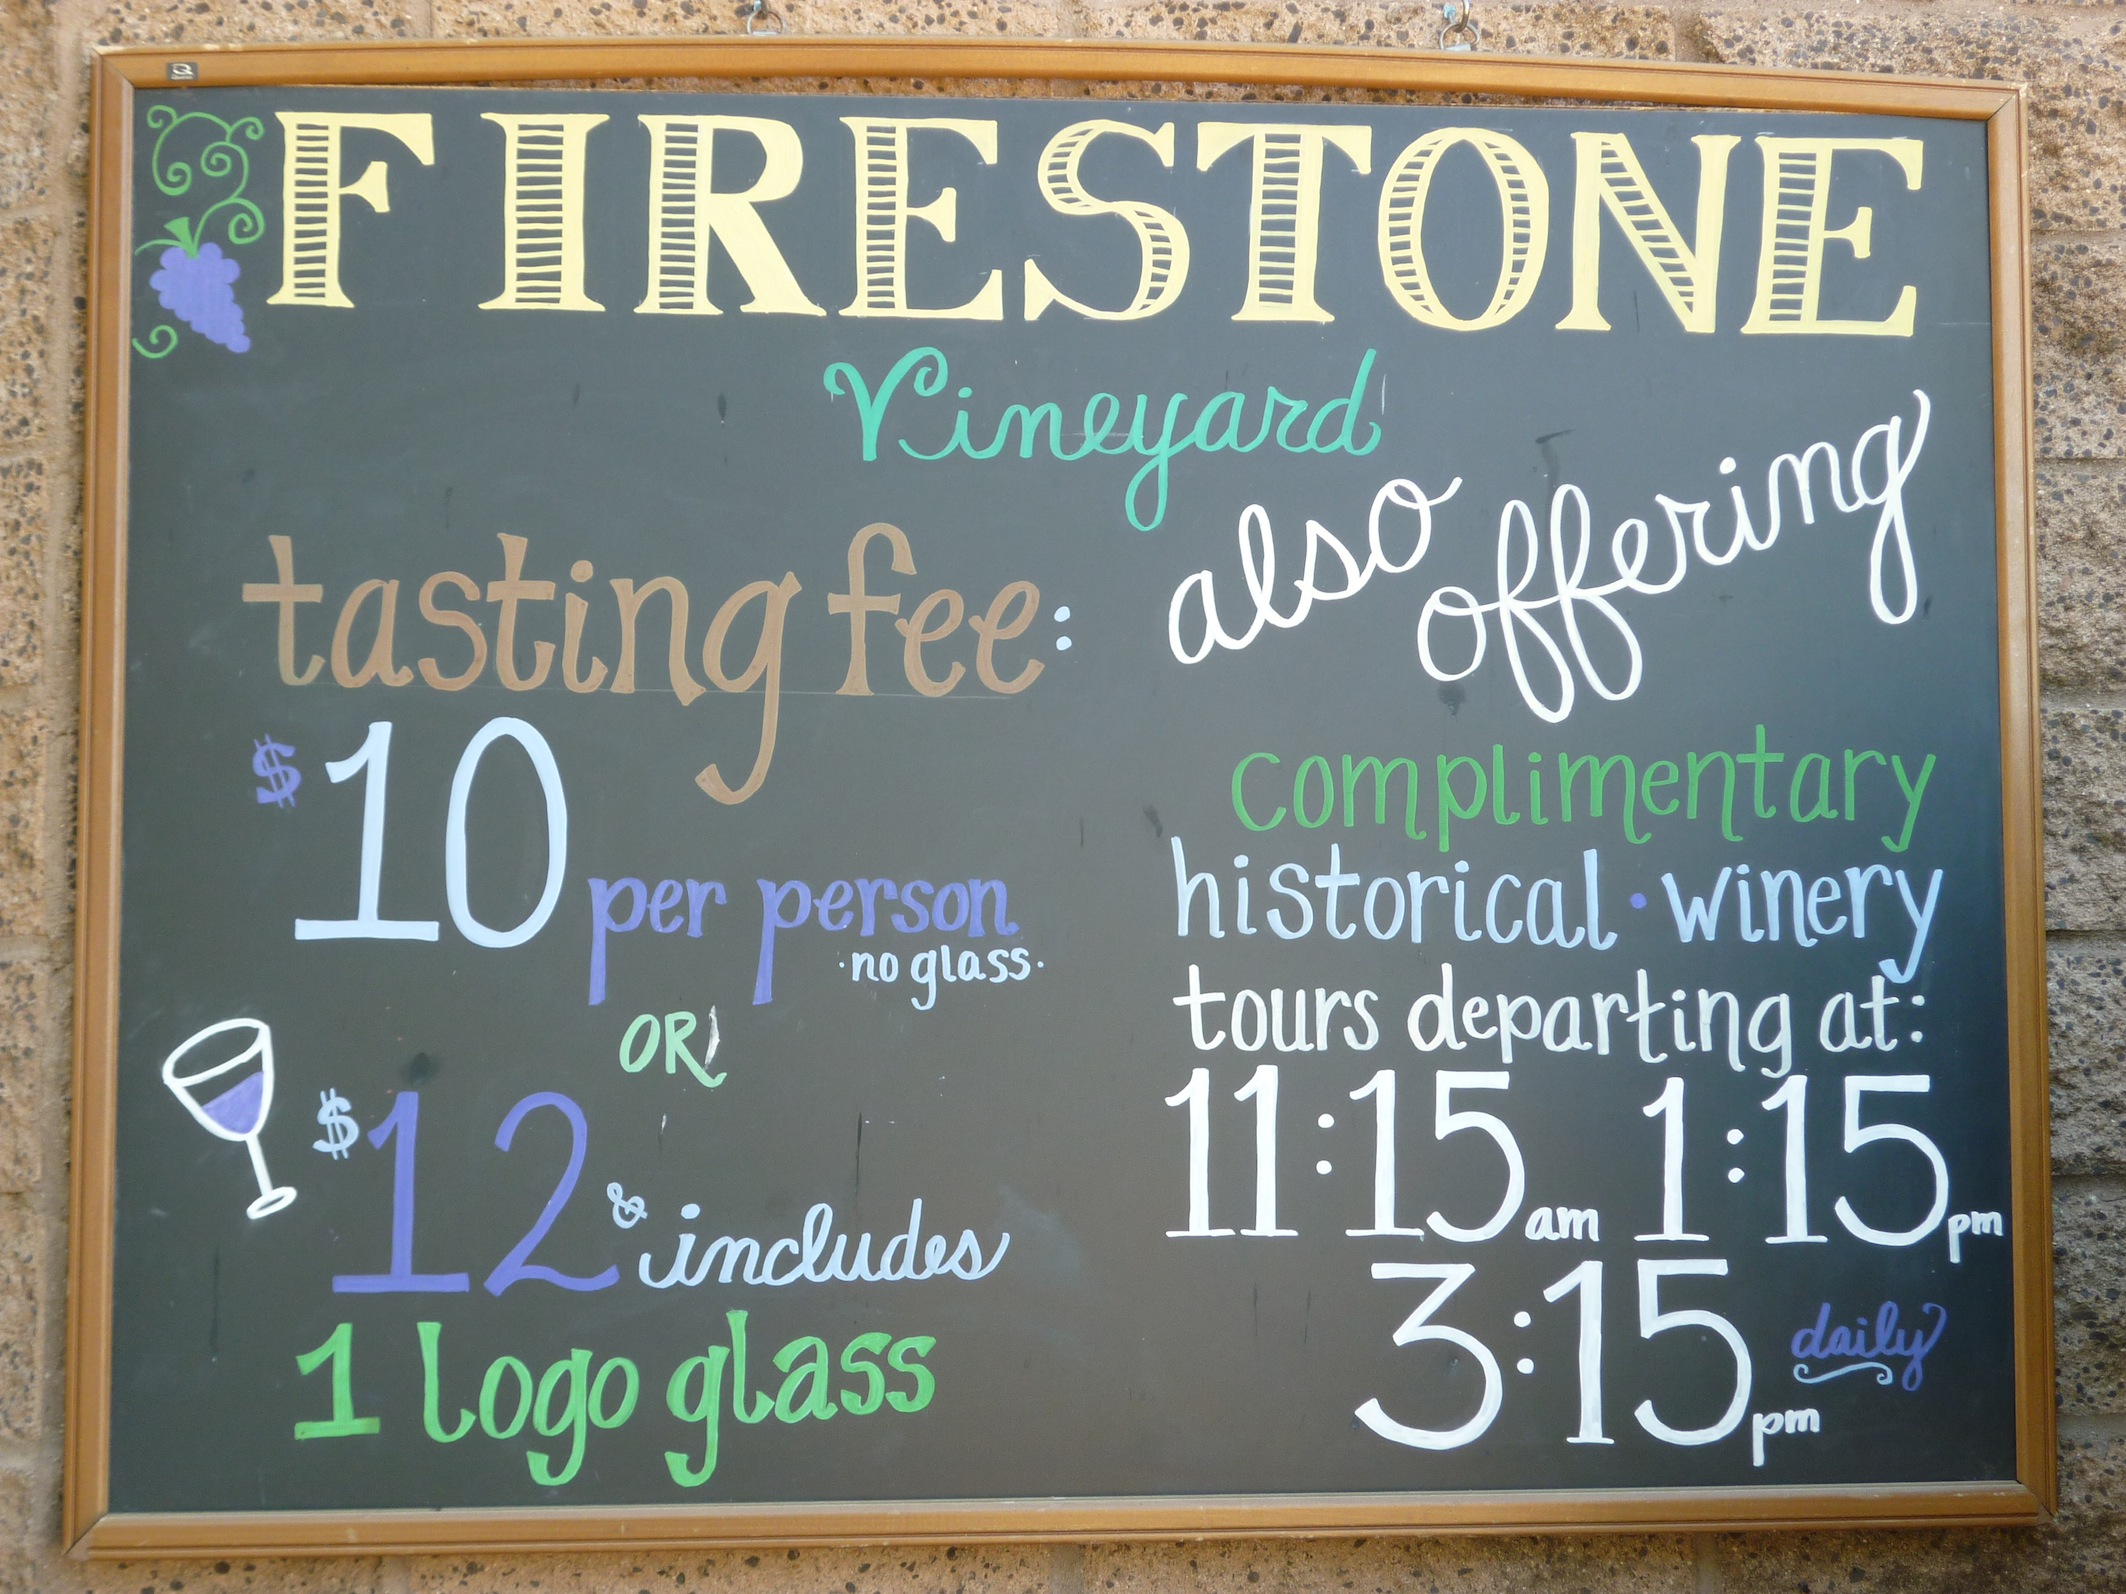 FIRESTONE
Vineyard
tasting fee:
$10 per person
·no glass·
OR
$12 & includes
1 logo glass
also offering
complimentary
historical · winery
tours departing at:
11:15 am 1:15 pm
3:15 pm daily